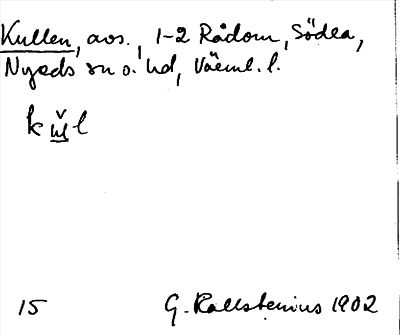 Kullen, avs., 1-2 Rådom, Södra,
Nyeds sn o. hd, Värml. l.
kul
15 G. Kallstenius 1902